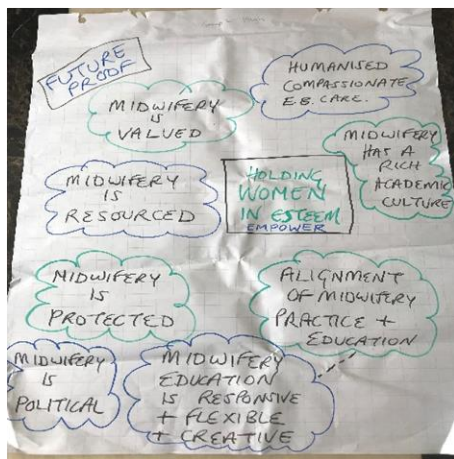 FUTURE
PROOF
HUMANISED
COMPASSIONATE
E.B. CARE.
MIDWIFERY
IS
VALUED
MIDWIFERY
HAS A
RICH
ACADEMIC
CULTURE
HOLDING
WOMEN
IN ESTEEM
EMPOWER
MIDWIFERY
IS
RESOURCED
MIDWIFERY
IS
PROTECTED
ALIGNMENT
OF MIDWIFERY
PRACTICE +
EDUCATION
MIDWIFERY
IS
POLITICAL
MIDWIFERY
EDUCATION
IS RESPONSIVE
+ FLEXIBLE
+ CREATIVE